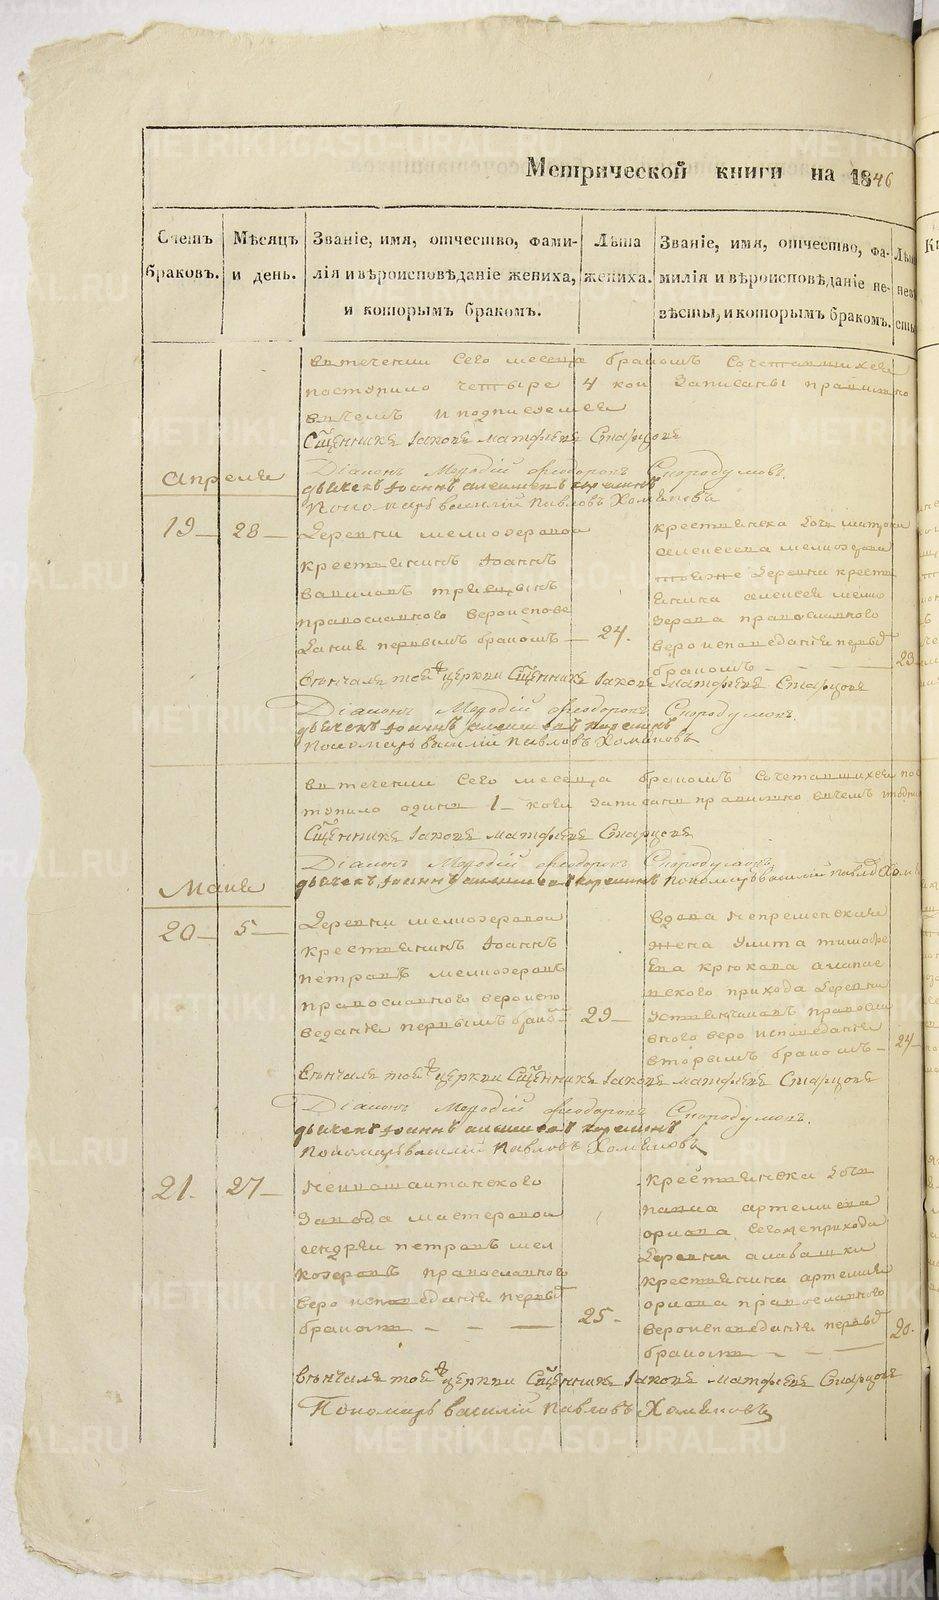 Метрической книги на 1846
Счетъ браковъ.
Мѣсяцъ и день.
Званіе, имя, отчество, фами-
лія и вѣроисповѣданіе жениха,
и которымъ бракомъ.
Лѣта жениха.
Званіе, имя, отчество, фа-
милія и вѣроисповѣданіе не-
вѣсты, и которымъ бракомъ.
втечении сего месеца браком сочетавшихсея
поступило четыре 4 кои записаны правильно
вчемъ и подписуемсея
Священникъ Іаковъ Матфеевъ Старцовъ
Діаконъ Меѳодій Ѳеодоровъ Скородумовъ
дьячекъ Іоаннъ
Пономарь Василій Павловъ Хомяковъ
Апреля
19 28
Деревни мелкозеровой
крестьянинъ Іоаннъ
вавиловъ
православного вероиспове
дания первымъ бракомъ 24.
крестьянска дочь
мелкозерова
тояже деревни кресть
янина алексея мелко
зерова православного
вероисповедания первы
бракомъ 23
венчалъ тоя церкви Священникъ Іаковъ Матфеевъ Старцовъ
Діаконъ Меѳодій Ѳеодоровъ Скородумовъ
дьячекъ Іоаннъ
Пономарь Василій Павловъ Хомяковъ
втечении сего месеца браком сочетавшихсея пос
тупило один 1 коеи записани правильно вчемъ
Священникъ Іаковъ Матфеевъ Старцовъ
Діаконъ Меѳодій Ѳеодоровъ Скородумовъ
дьячекъ Іоаннъ Пономарь Василій Павловъ
Маия
20 5
Деревни мелкозеровой
крестьянинъ Іоаннъ
петровъ мелкозеровъ
православного вероиспо
ведания первымъ 29
вдова непременская
жена Улита тимофе
ева крюкова
прихода деревни
правосла
вного вероисповедания
вторымъ браком 24
венчалъ тоя церкви Священникъ Іаковъ Матфеевъ Старцовъ
Діаконъ Меѳодій Ѳеодоровъ Скородумовъ
дьячекъ Іоаннъ
Пономарь Василій Павловъ Хомяковъ
21. 27
Нейвошайтанского
завода мастеровой
андреи петровъ мел
козеровъ православного
вероисповедания первы
браком 25
крестьянска дочь
артемиева
орлова сегоже прихода
деревни алабашки
крестьянина артемия
орлова православного
вероисповедания первы
браком 20.
венчалъ тоя церкви Священникъ Іаковъ Матфеевъ Старцовъ
Пономарь Василій Павловъ Хомяковъ
METRIKI.GASO-URAL.RU